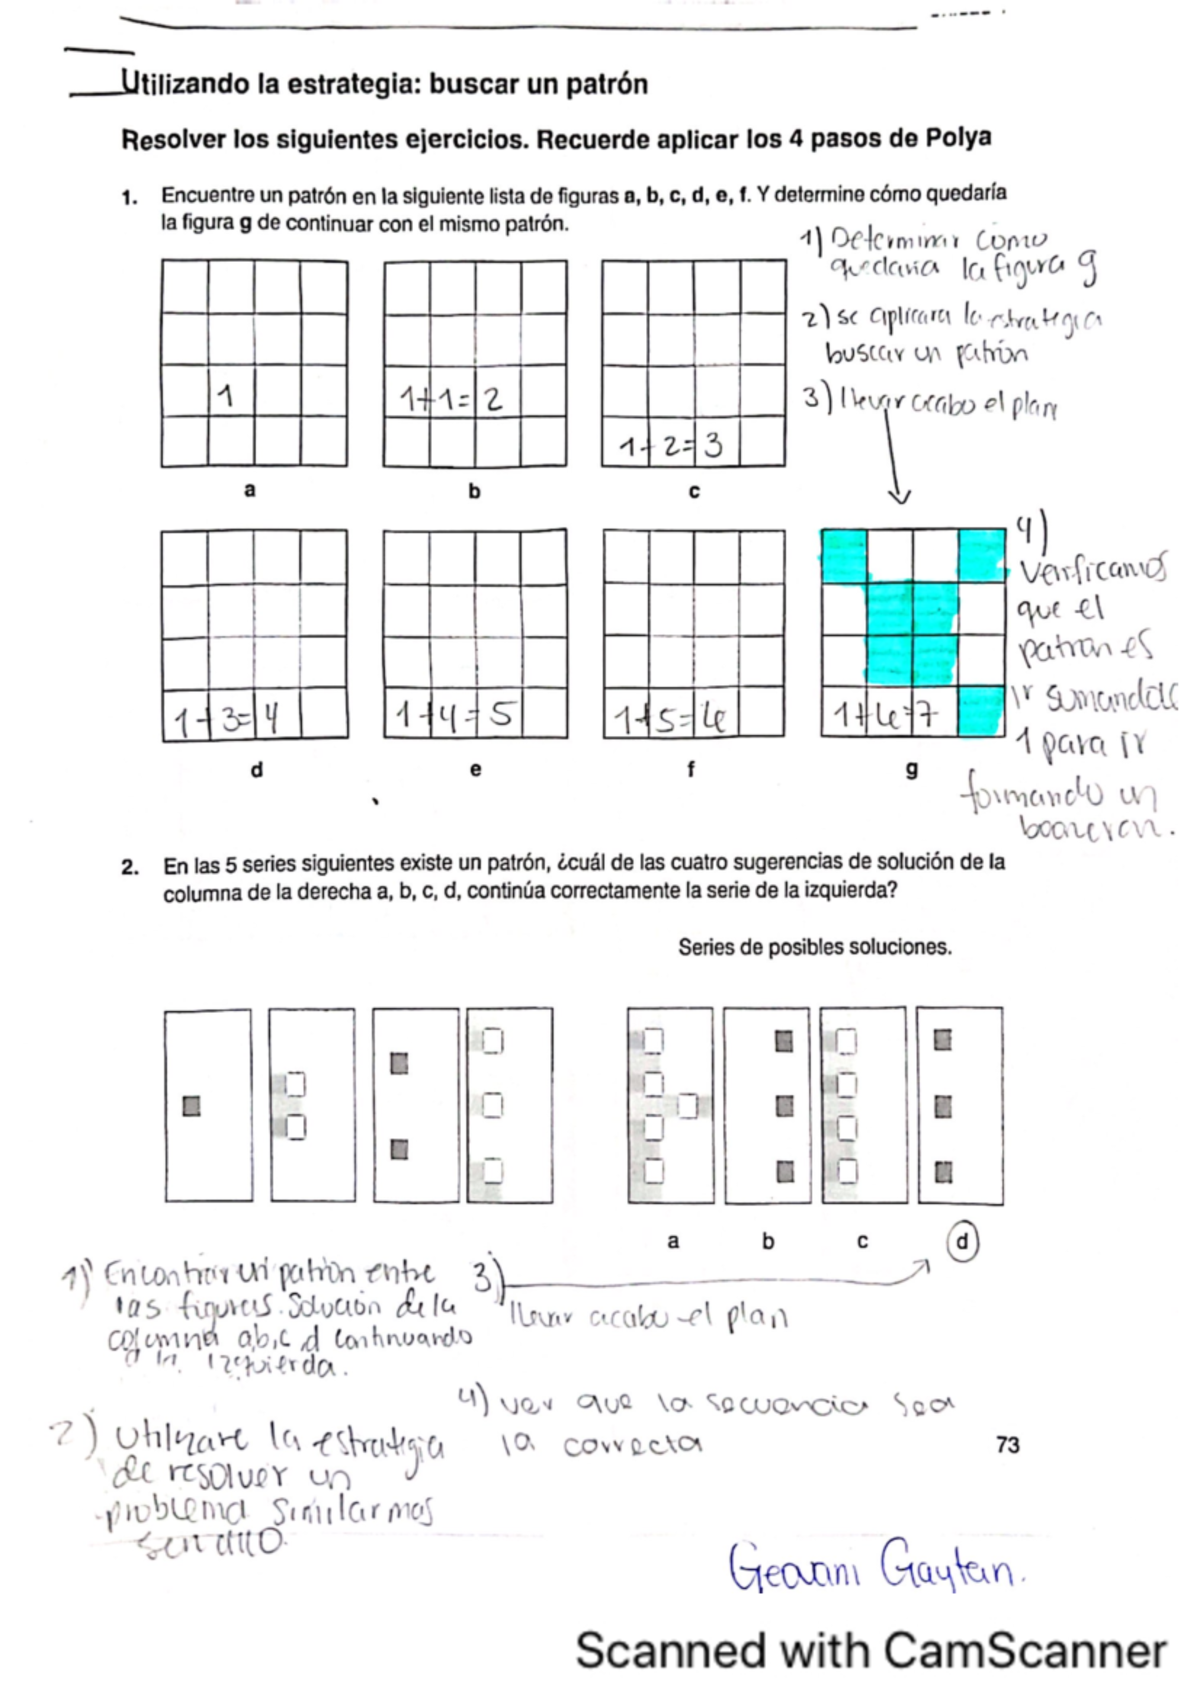 Utilizando la estrategia: buscar un patrón
Resolver los siguientes ejercicios. Recuerde aplicar los 4 pasos de Polya
1. Encuentre un patrón en la siguiente lista de figuras a, b, c, d, e, f. Y determine cómo quedaría
la figura g de continuar con el mismo patrón.
1) Determinar como
quedaria la figura g
2) se aplicara la estrategia
buscar un patrón
3) llevar acabo el plan
1
1+1=2
1+2=3
a b c
4)
Verificamos
que el
patron es
ir sumandole
1 para ir
formando un
1+3=4
1+4=5
1+5=6
1+6=7
d e f g
2. En las 5 series siguientes existe un patrón, ¿cuál de las cuatro sugerencias de solución de la
columna de la derecha a, b, c, d, continúa correctamente la serie de la izquierda?
Series de posibles soluciones.
a b c d
1) Encontrar un patrón entre
las figuras. Solución de la
columna a,b,c d continuando
a la izquierda.
3)
llevar acabo el plan
4) ver que la secuencia sea
la correcta
2) Utilizare la estrategia
de resolver un
problema similar mas
sencillo.
73
Geovani Gaytan.
Scanned with CamScanner